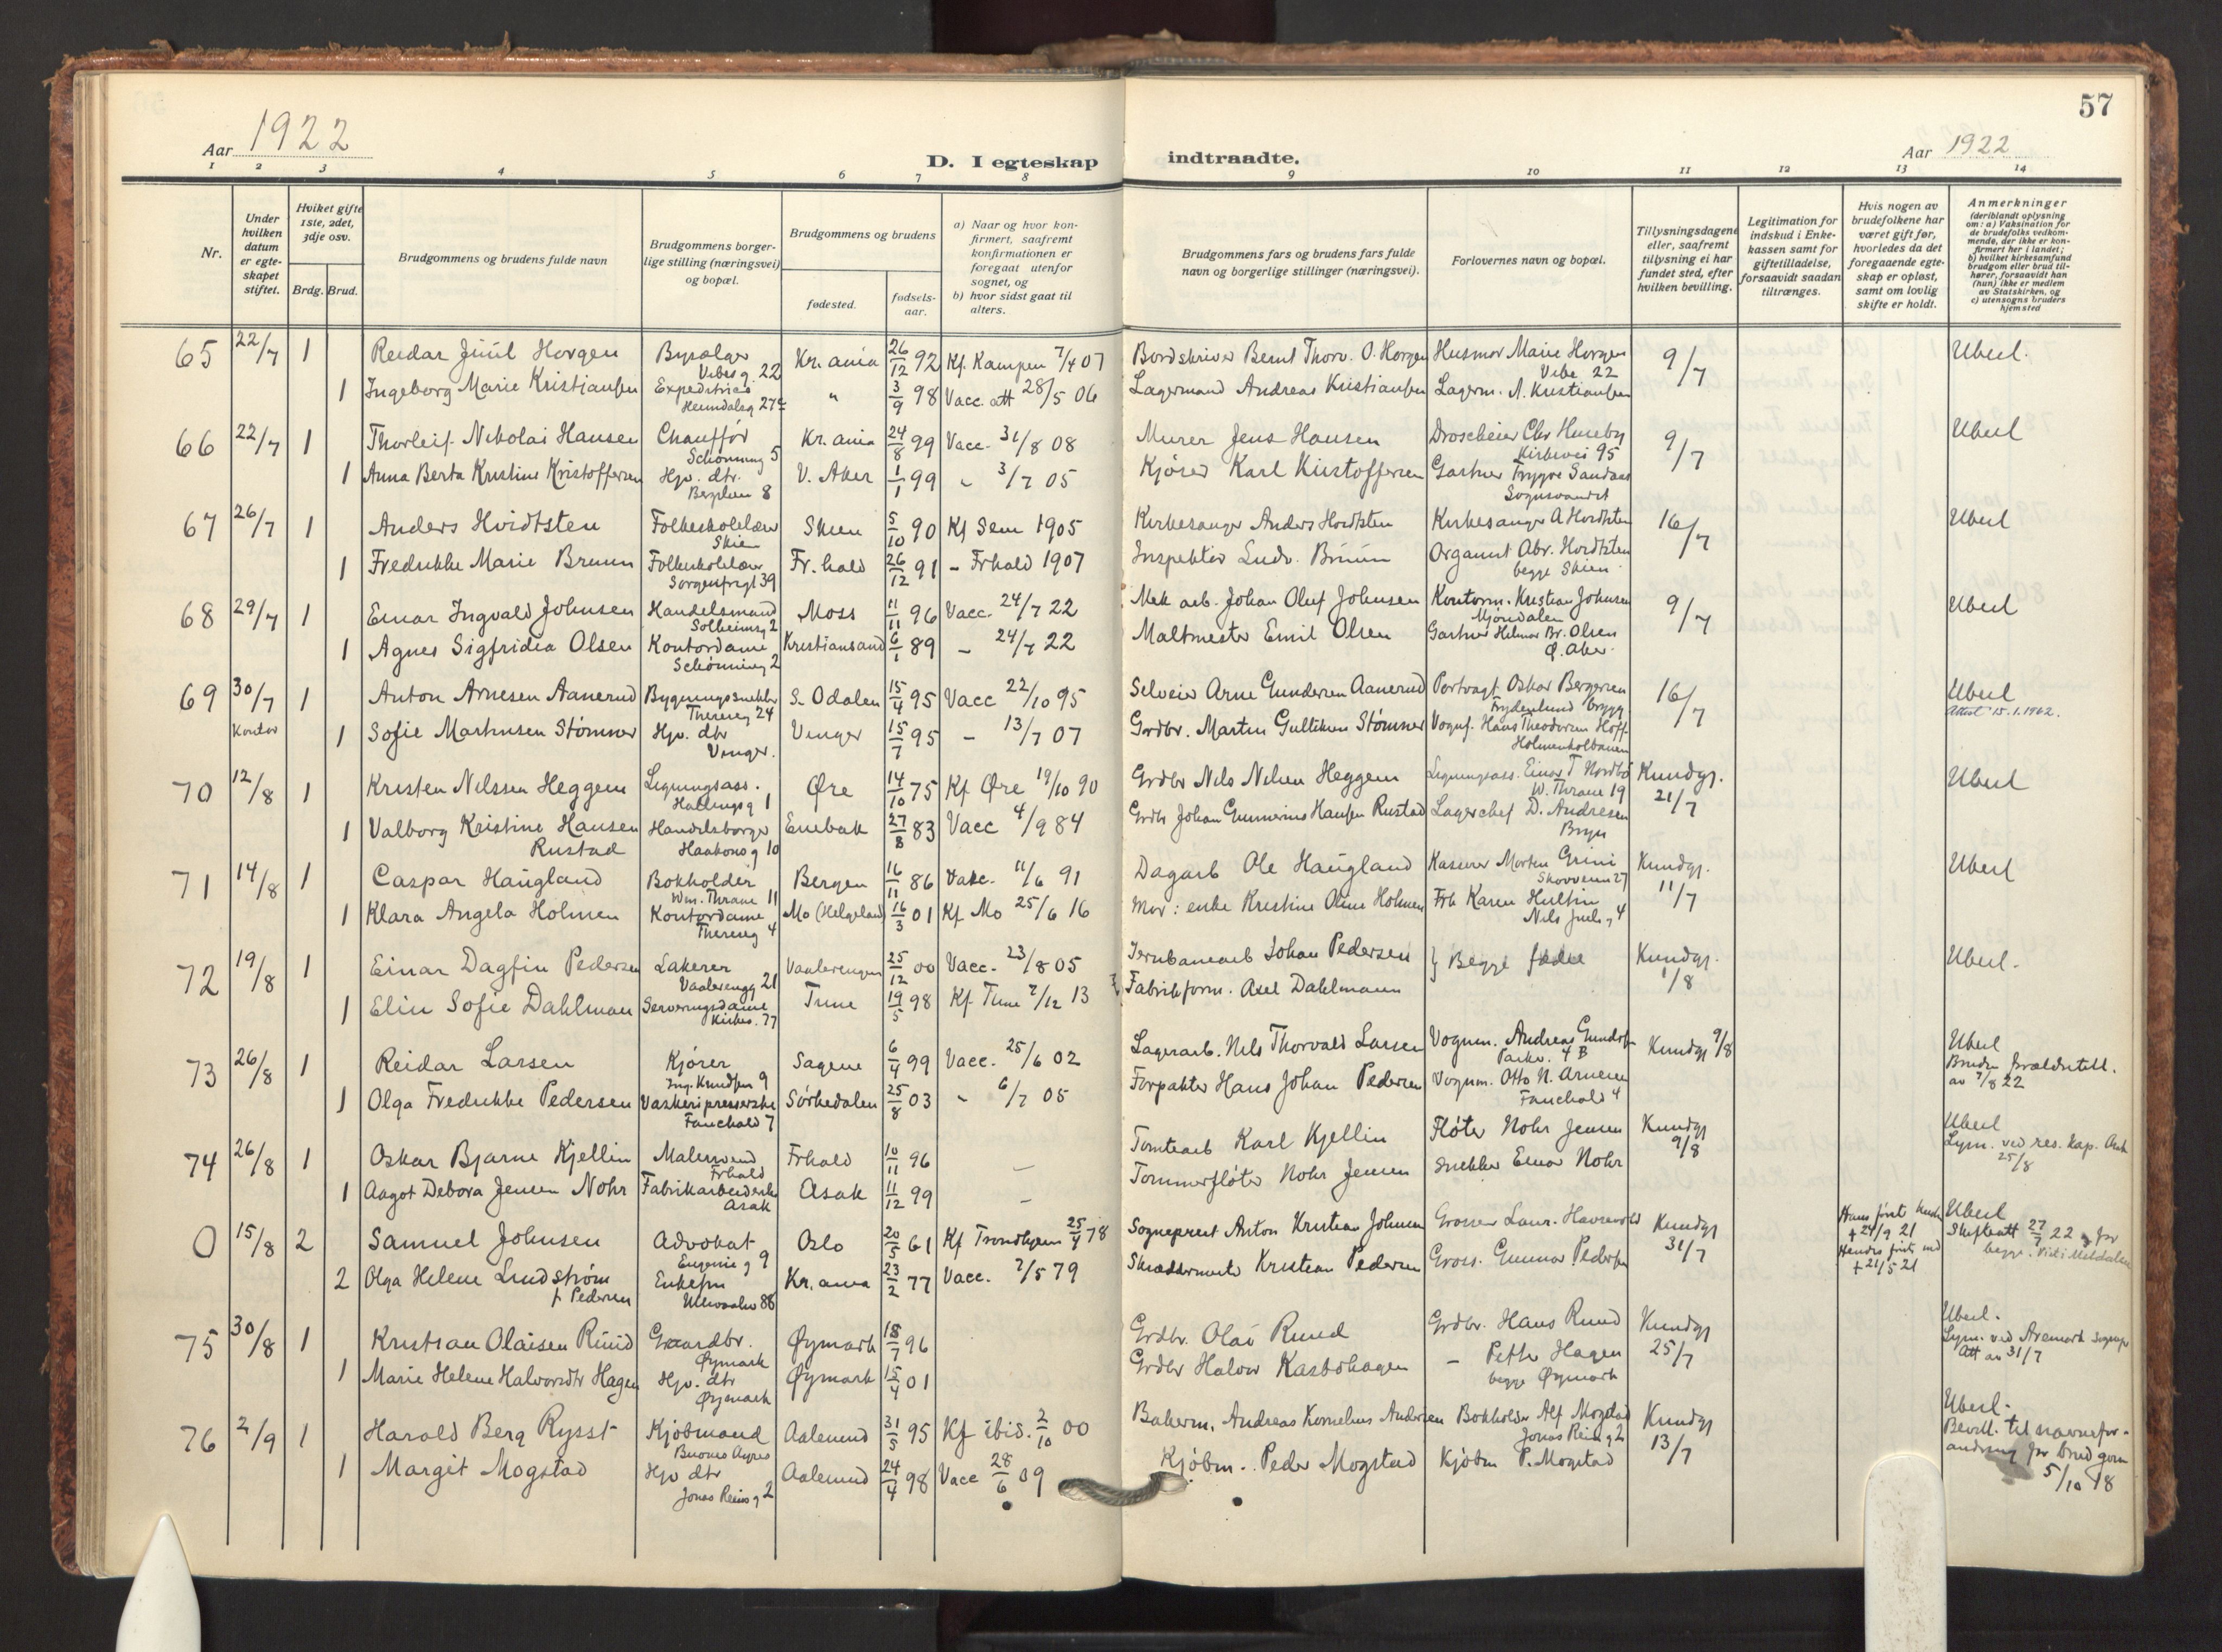 57
Aar 1922
D. I egteskap
indtraadte.
Aar 1922
1 2 3 4 5 6 7 8 9 10 11 12 13 14
Nr.
Under hvilken datum er egteskapet stiftet.
Hviket gifte 1ste, 2det, 3dje osv.
Brdg. Brud.
Brudgommens og brudens fulde navn
Brudgommens borgerlige stilling (næringsvei) og bopæl.
Brudgommens og brudens
fødested.
fødselsaar.
a) Naar og hvor konfirmert, saafremt konfirmationen er foregaat utenfor sognet, og
b) hvor sidst gaat til alters.
Brudgommens fars og brudens fars fulde navn og borgerlige stillinger (næringsvei).
Forlovernes navn og bopæl.
Tillysningsdagene eller, saafremt tillysning ei har fundet sted, efter hvilken bevilling.
Legitimation for indskud i Enkekassen samt for giftetilladelse, forsaavidt saadan tiltrænges.
Hvis nogen av brudefolkene har været gift før, hvorledes da det foregaaende egteskap er opløst, samt om lovlig skifte er holdt.
Anmerkninger (deriblandt oplysning om: a) Vaksination for de brudefolks vedkommende, der ikke er konfirmert her i landet; b) hvilket kirkesamfund brudgom eller brud tilhører, forsaavidt han (hun) ikke er medlem av Statskirken, og c) utensogns bruders hjemsted
65 22/7 1 Reidar Juul Horgen Byselger Vibesg. 22 Kr.ania 26/12 92 Kf. Kampen 7/4 07 Bordskriver Bernt Thorv. O. Horgen Husmor Marie Horgen Vibe 22 9/7 Uberl.
1 Ingeborg Marie Kristiansen Expeditrice Heimdalsg 27 " 3/9 98 Vacc. att 28/5 06 Lagermand Andreas Kristiansen Lagerm. A. Kristiansen
66 22/7 1 Thorleif Nikolai Hansen Chauffør Schønning 5 Kr.ania 24/8 99 Vacc. 31/8 08 Murer Jens Hansen Droscheier Chr Huseby Kirkevei 95 9/7 Uberl
1 Anna Berta Kristine Kristoffersen Hjv. dtr. Berglien 8 V. Aker 1/1 99 - 3/7 05 Kjører Karl Kristoffersen Gartner Trygve Sandaas Sognsvandet
67 26/7 1 Anders Hvidtsten Folkeskolelær Skien Skien 5/10 90 Kf Sem 1905 Kirkesanger Anders Hvidtsten Kirkesanger A Hvidtsten 16/7 Uberl
1 Fredrikke Marie Bruun Folkeskolelær Sorgenfrigt 39 Fr.hald 26/12 91 - Frhald 1907 Inspektør Ludv. Bruun Organist Abr. Hvidtsten begge Skien
68 29/7 1 Einar Ingvald Johnsen Handelsmand Solheimsg 2 Moss 11/11 96 Vacc. 24/7 22 Mek arb. Johan Oluf Johnsen Kontorm. Kristian Johnsen Mjøndalen 9/7 Uberl
1 Agnes Sigfridia Olsen Kontordame Schønning 2 Kristiansand 6/1 89 - 24/7 22 Maltmester Emil Olsen Gartner Helmer Br. Olsen Ø. Aker
69 30/7 Kontor 1 Anton Arnesen Aanerud Bygningssnekker Thereseg 24 S. Odalen 15/4 95 Vacc 22/10 95 Selveier Arne Gundersen Aanerud Portvagt Oskar Bergersen Frydenlund brygg 16/7 Uberl Attest 15.1.1962.
1 Sofie Martinsen Størmer Hjv. dtr Vinger. Vinger 15/7 95 - 13/7 07 Grdbr. Martin Gulliksen Størmer Vognf. Hans Theodorsen Hoff Holmenkolbanen
70 12/8 1 Kristen Nilssen Heggem Ligningsass. Hallingsg 1 Øre 14/10 75 Kf Øre 19/10 90 Grdbr Nils Nilsen Heggem Ligningsass. Einar T Nordbø W. Thrane 19 Kundgj. 21/7 Uberl
1 Valborg Kristine Hansen Rustad Handelsborger Haakonsg 10 Enebak 27/8 83 Vacc 4/9 84 Grdbr Johan Gunnerius Hansen Rustad Lagerchef D. Andresen Bryn
71 14/8 1 Caspar Haugland Bokholder Wm. Thrane 11 Bergen 16/11 86 Vacc. 11/6 91 Dagarb Ole Haugland Kasserer Morten Grini Skovveien 27 Kundgj. 11/7 Uberl
1 Klara Angela Holmen Kontordame Thereseg 4 Mo (Helgeland) 16/3 01 Kf Mo 25/6 16 Mor: enke Kristine Oline Holmen Frk Karen Hultin Nils Juelsg 4
72 19/8 1 Einar Dagfin Pedersen Lakerer Vaalerengg 21 Vaalerengen 25/12 00 Vacc. 23/8 05 Jernbanearb Johan Pedersen } Begge fædre Kundgj. 1/8 Uberl.
1 Elin Sofie Dahlman Serveringsdame Kirkev. 77 Tune 19/5 98 Kf Tune 7/12 13 Fabrikform. Axel Dahlmann
73 26/8 1 Reidar Larsen Kjører Ing. Knudsen 9 Sagene 6/4 99 Vacc. 25/6 02 Lagerarb. Nils Thorvald Larsen Vognm. Andreas Gundersen Parkv. 4 B Kundgj 9/8 Uberl Bruden forældretill. av 7/8 22
1 Olga Fredrikke Pedersen Vaskeripresserske Fauchald 7 Sørkedalen 25/8 03 - 6/7 05 Forpakter Hans Johan Pedersen Vognm. Otto N. Arnesen Fauchald 4
74 26/8 1 Oskar Bjarne Kjellin Malersvend Frhald Frhald 10/11 96 - Tomtearb Karl Kjellin Fløter Nohr Jensen Kundgj 9/8 Uberl Lysn. ved res. kap. Ask 25/8
1 Aagot Debora Jensen Nohr Fabrikarbeiderske Asak Asak 11/12 99 - Tømmerfløter Nohr Jensen Snekker Einar Nohr
0 15/8 2 Samuel Johnsen Advokat Eugenieg 9 Oslo 20/5 61 Kf Trondhjem 25/4 78 Sogneprest Anton Kristian Johnsen Grosser Laur. Havrevold Kundgj 31/7 Hans første hustru + 24/9 21 Hendes første md + 21/5 21 Uberl Skifteatt 27/7 22 for begge.
2 Olga Helene Lindstrøm f. Pedersen Enkefru Ullevaalsv 88 Kr.ania 23/2 77 Vacc. 7/5 79 Skreddermester Kristian Pedersen Gross. Gunnar Pedersen
75 30/8 1 Kristian Olaisen Ruud Gaardbr. Øymark Øymark 18/7 96 Grdbr. Olai Ruud Grdbr. Hans Ruud Kundgj 25/7 Uberl. Lysn. ved Aremark Sognepr Att av 31/7
1 Marie Helene Halvorsdtr Hagen Hjv. dtr Øymark Øymark 15/4 01 Grdbr Halvor Kasbohagen - Petter Hagen begge Øymark
76 2/9 1 Harald Berg Rysst Kjøbmand Buenos Ayres Aalesund 31/5 95 Kf ibid. 2/10 00 Bakerm. Andreas Kornelius Andersen Bokholder Alf Mogstad Jonas Reinsg 2 Kundgj 13/7 Uberl. Bevill. til navneforandring for brudgom 5/10 18
1 Margit Mogstad Hjv dtr Jonas Reinsg 2 Aalesund 24/4 98 Vacc 28/6 09 Kjøbm. Peder Mogstad Kjøbm P. Mogstad